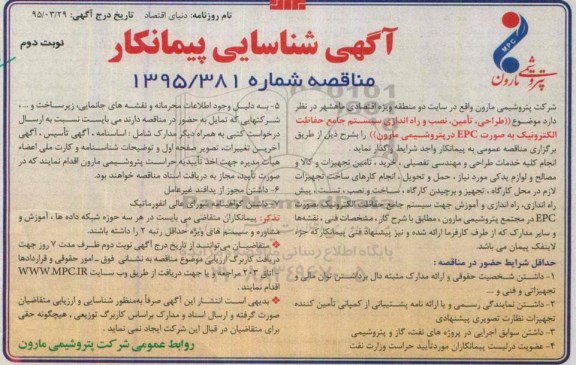 نام روزنامه: دنیای اقتصاد
تاریخ درج آگهی: ۹۵/۰۳/۲۹
نوبت دوم
آگهی شناسایی پیمانکار
مناقصه شماره ۱۳۹۵/۳۸۱
MPC
پتروشیمی مارون
شرکت پتروشیمی مارون واقع در سایت دو منطقه ویژه اقتصادی ماهشهر در نظر
دارد موضوع ((طراحی، تأمین، نصب و راه اندازی سیستم جامع حفاظت
الکترونیک به صورت EPC در پتروشیمی مارون)) را بشرح ذیل از طریق
برگزاری مناقصه عمومی به پیمانکار واجد شرایط واگذار نماید.
انجام کلیه خدمات طراحی و مهندسی تفصیلی، خرید، تأمین تجهیزات و کالا و
مصالح و لوازم یدکی مورد نیاز، حمل و تحویل، انجام کارهای ساخت تجهیزات
لازم در محل کارگاه، تجهیز و برچیدن کارگاه، ساخت و نصب، تست، پیش
راه اندازی، راه اندازی و آموزش جهت سیستم جامع حفاظت الکترونیک به صورت
EPC در مجتمع پتروشیمی مارون، مطابق با شرح کار، مشخصات فنی، نقشه‌ها
و سایر مدارک که از طرف کارفرما ارائه شده و نیز پیشنهاد فنی پیمانکار که جزء
لاینفک پیمان می باشد.
حداقل شرایط حضور در مناقصه:
۱- داشتن شخصیت حقوقی و ارائه مدارک مثبته دال برداشتن توان مالی و
تجهیزاتی و فنی و ...
۲- داشتن نمایندگی رسمی و یا ارائه نامه پشتیبانی از کمپانی تأمین کننده
تجهیزات نظارت تصویری پیشنهادی
۳- داشتن سوابق اجرایی در پروژه های نفت، گاز و پتروشیمی
۴- عضویت درلیست پیمانکاران موردتأیید حراست وزارت نفت
۵- به دلیل وجود اطلاعات محرمانه و نقشه های جانمایی، زیرساخت و ...،
شرکتهایی که تمایل به حضور در مناقصه دارند می بایست نسبت به ارسال
درخواست کتبی به همراه دیگر مدارک شامل: اساسنامه، آگهی تأسیس، آگهی
آخرین تغییرات، تصویر صفحه اول و توضیحات شناسنامه و کارت ملی اعضاء
هیأت مدیره جهت اخذ تأییدیه حراست پتروشیمی مارون اقدام نمایند که در
صورت تأیید، مجاز به دریافت اسناد مناقصه خواهند بود.
۶- داشتن مجوز از پدافند غیرعامل
شورای عالی انفورماتیک
تذکر: پیمانکاران متقاضی می بایست در هر سه حوزه شبکه داده ها، آموزش و
مشاوره و سیستم های ویژه حداقل رتبه ۲ را داشته باشند.
متقاضیان می‌توانند از تاریخ درج آگهی نوبت دوم ظرف مدت ۷ روز جهت
دریافت کاربرگ ارزیابی موضوع مناقصه به نشانی فوق - امور حقوقی و قراردادها
- اتاق ۲۰۳ مراجعه و یا جهت دریافت از طریق وب سایت WWW.MPC.IR
اقدام نمایند.
بدیهی است انتشار این آگهی صرفاً به‌منظور شناسایی و ارزیابی متقاضیان
صورت گرفته و ارسال اسناد و مدارک براساس کاربرگ توزیعی، هیچگونه حقی
برای متقاضیان در قبال این شرکت ایجاد نمی نماید.
روابط عمومی شرکت پتروشیمی مارون